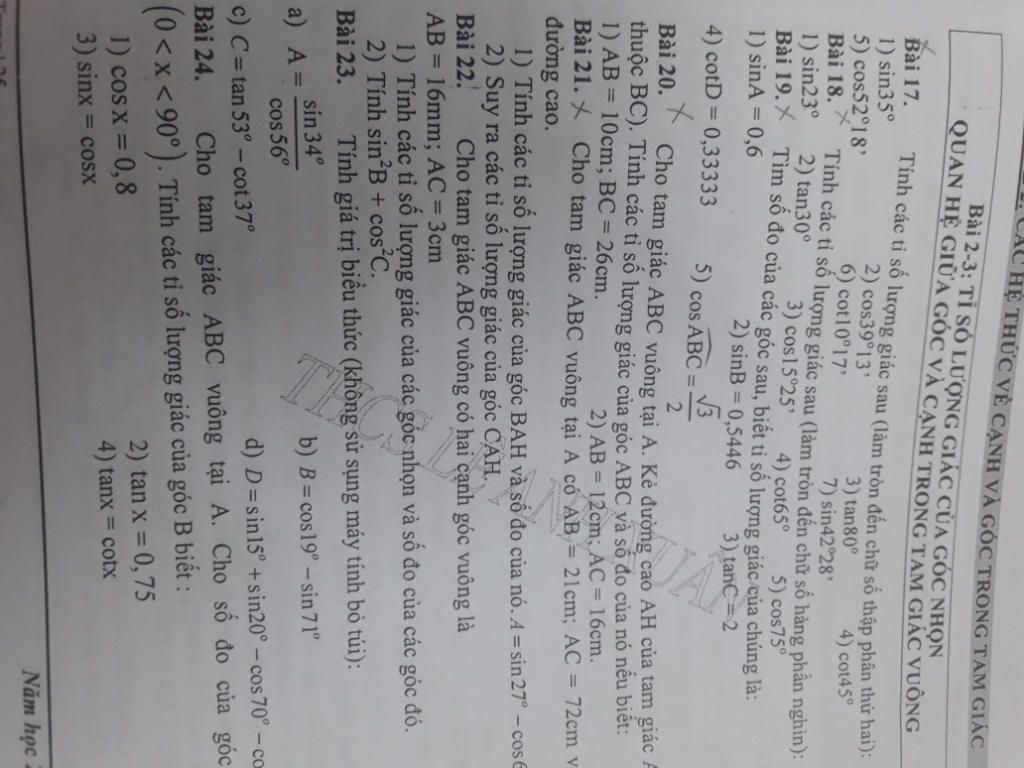 CÁC HỆ THỨC VỀ CẠNH VÀ GÓC TRONG TAM GIÁC
Bài 2-3: TỈ SỐ LƯỢNG GIÁC CỦA GÓC NHỌN
QUAN HỆ GIỮA GÓC VÀ CẠNH TRONG TAM GIÁC VUÔNG
Bài 17. Tính các tỉ số lượng giác sau (làm tròn đến chữ số thập phân thứ hai):
1) sin35° 2) cos39°13' 3) tan80° 4) cot45°
5) cos52°18' 6) cot10°17' 7) sin42°28'
Bài 18. Tính các tỉ số lượng giác sau (làm tròn đến chữ số hàng phần nghìn):
1) sin23° 2) tan30° 3) cos15°25' 4) cot65° 5) cos75°
Bài 19. Tìm số đo của các góc sau, biết tỉ số lượng giác của chúng là:
1) sinA = 0,6 2) sinB = 0,5446 3) tanC = 2
4) cotD = 0,33333 5) cosABC = √3/2
Bài 20. Cho tam giác ABC vuông tại A. Kẻ đường cao AH của tam giác
thuộc BC). Tính các tỉ số lượng giác của góc ABC và số đo của nó nếu biết:
1) AB = 10cm; BC = 26cm. 2) AB = 12cm; AC = 16cm.
Bài 21. Cho tam giác ABC vuông tại A có AB = 21cm; AC = 72cm
đường cao.
1) Tính các tỉ số lượng giác của góc BAH và số đo của nó. A = sin27° − cos
2) Suy ra các tỉ số lượng giác của góc CAH
Bài 22. Cho tam giác ABC vuông có hai cạnh góc vuông là
AB = 16mm; AC = 3cm
1) Tính các tỉ số lượng giác của các góc nhọn và số đo của các góc đó.
2) Tính sin²B + cos²C.
Bài 23. Tính giá trị biểu thức (không sử sụng máy tính bỏ túi):
a) A = sin34°/cos56° b) B = cos19° − sin71°
c) C = tan53° − cot37° d) D = sin15° + sin20° − cos70° −
Bài 24. Cho tam giác ABC vuông tại A. Cho số đo của góc
(0 < x < 90°). Tính các tỉ số lượng giác của góc B biết :
1) cos x = 0,8 2) tan x = 0,75
3) sinx = cosx 4) tanx = cotx
Năm học
THCS LÊ ANH XUÂN